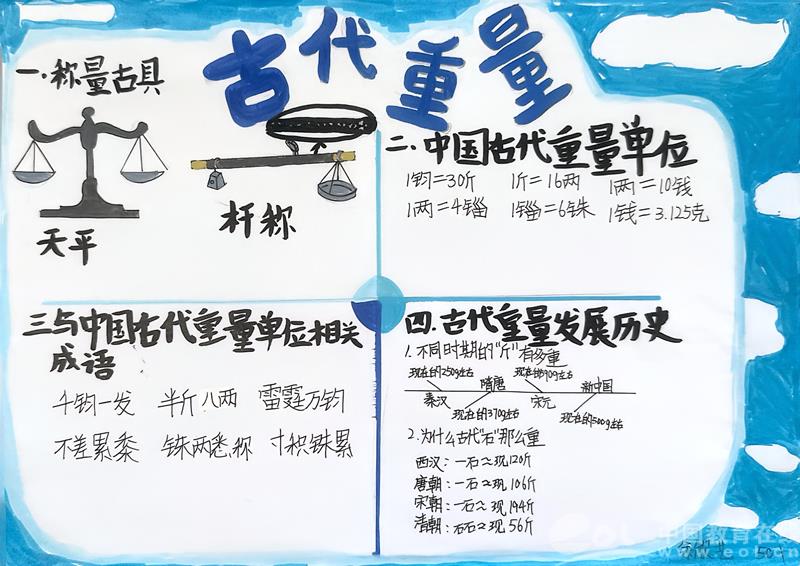 古代重量
一.称量古具
天平
杆称
二.中国古代重量单位
1钧=30斤 1斤=16两 1两=10钱
1两=4锱 1锱=6铢 1钱=3.125克
三与中国古代重量单位相关
成语
千钧一发 半斤八两 雷霆万钧
不差累黍 铢两悉称 寸积铢累
四.古代重量发展历史
1.不同时期的"斤"有多重
现在的250g左右
隋唐
新中国
秦汉
现在的370g左右
宋元
现在的500g左右
2.为什么古代"石"那么重
西汉:一石≈现120斤
唐朝:一石≈现106斤
宋朝:一石≈现194斤
清朝:石≈现56斤
中国教育在线
www.eol.cn